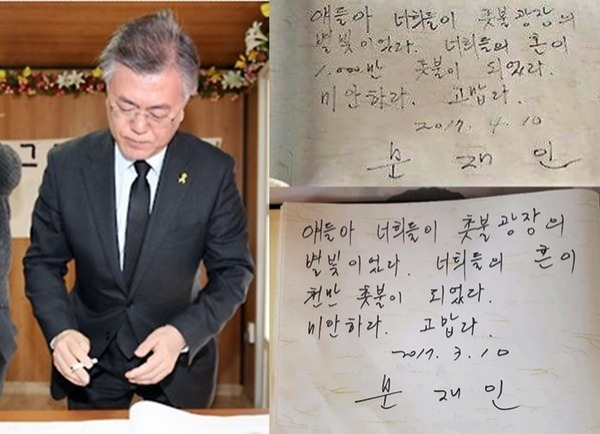 그
얘들아 너희들이 촛불광장의
별빛이었다. 너희들의 혼이
1,000만 촛불이 되었다.
미안하다. 고맙다.
2017. 4. 10
문 재 인
얘들아 너희들이 촛불광장의
별빛이었다. 너희들의 혼이
천만 촛불이 되었다.
미안하다. 고맙다.
2017. 3. 10
문 재 인